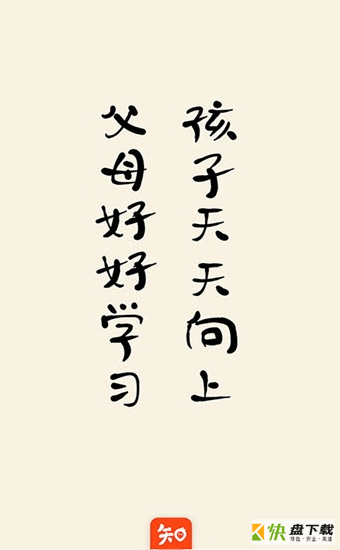 父母好好学习
孩子天天向上
知
快盘下载
绿色·安全·高速